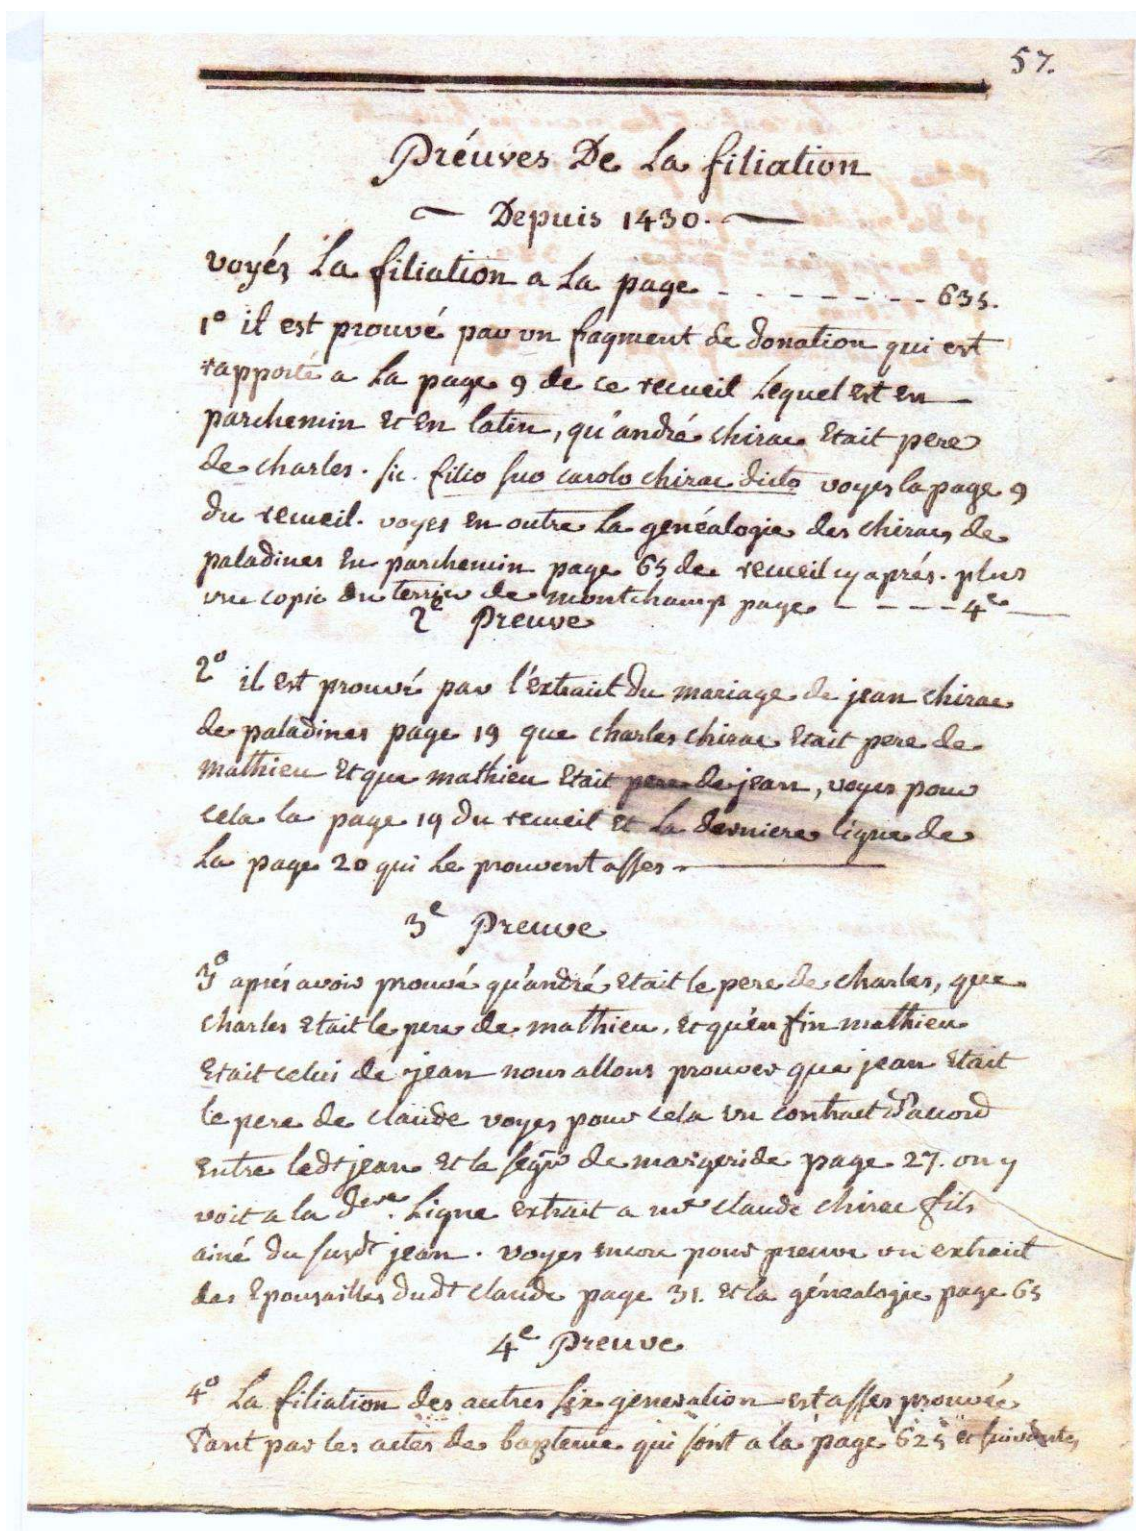 57.
Préuves De La filiation
Depuis 1430.
voyés La filiation a La page - - - - - - - 635.
1º il est prouvé par un fragment de donation qui est
rapporté a La page 9 de ce recueil Lequel est en
parchemin et en latin, qu'andré chirac etait pere
de charles. sic. filio suo carolo chirac dicto voyes la page 9
du recueil. voyes en outre La genéalogie des chiracs de
paladines en parchemin page 65 de recueil cy aprés. plus
une copie du terrier de montchamp page - - - - 4e
2e Preuve
2º il est prouvé par l'extrait du mariage de jean chirac
de paladines page 19 que charles chirac etait pere de
mathieu et que mathieu etait pere de jean, voyes pour
cela la page 19 du recueil et La derniere ligne de
La page 20 qui Le prouvent asses.
3e Preuve
3º aprés avoir prouvé qu'andré etait le pere de charles, que
charles etait le pere de mathieu, et qu'enfin mathieu
etait celui de jean nous allons prouver que jean etait
le pere de claude voyes pour cela un contract d'accord
entre ledt jean et le segr de margeride page 27. on y
voit a la dere. Ligne extrait a mr claude chirac fils
ainé du susdt jean. voyes encore pour preuve un extrait
des epousailles dudt claude page 31. et la génealogie page 65
4e Preuve
4º La filiation des autres six generation est asses prouvée
Tant par les actes de bapteme qui sont a la page 625 et suivantes